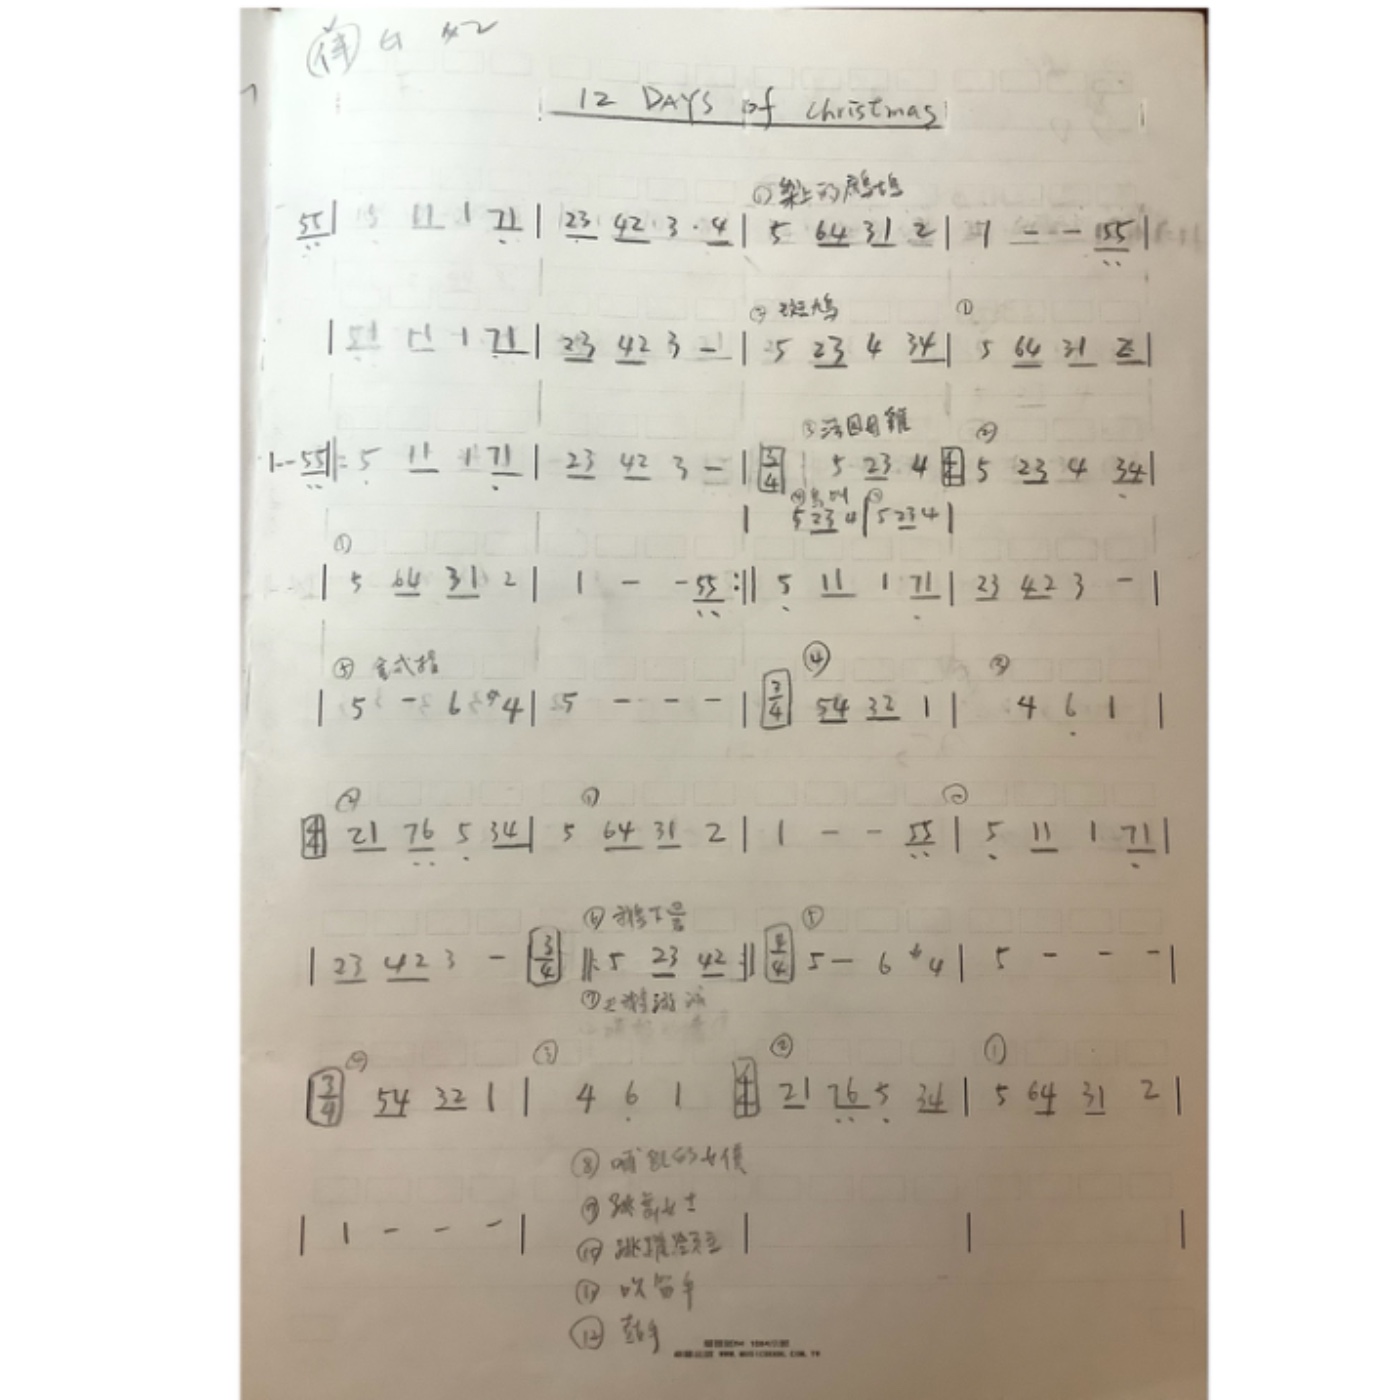 G 4/2
12 DAYS of Christmas
① 樹上的鷓鴣
55 | 5 11 1 71 | 23 42 3 · 4 | 5 64 31 2 | 1 - - 55 |
② 斑鳩 ①
| 51 11 1 71 | 23 42 3 - | 5 23 4 34 | 5 64 31 2 |
③ 法國母雞 ②
1 - - 55 ‖: 5 11 1 71 | 23 42 3 - | 3/4 5 23 4 4/4 5 23 4 34 |
④ 鳥叫 ③
| 5 23 4 | 5 23 4 |
①
| 5 64 31 2 | 1 - - 55 :‖ 5 11 1 71 | 23 42 3 - |
⑤ 金戒指 ④ ③
| 5 - 6 #4 | 5 - - - | 3/4 54 32 1 | 4 6 1 |
② ①
4/4 21 76 5 34 | 5 64 31 2 | 1 - - 55 | 5 11 1 71 |
⑥ 鵝下蛋 ⑤
| 23 42 3 - 3/4 ‖: 5 23 42 :‖ 4/4 5 - 6 #4 | 5 - - - |
⑦ 天鵝游泳
④ ③ ② ①
3/4 54 32 1 | 4 6 1 4/4 21 76 5 34 | 5 64 31 2 |
⑧
| 1 - - - |
⑨ 跳舞女士
⑩ 跳躍
⑪ 吹笛手
⑫ 鼓手
WWW.MUSICBOOK.COM.TW